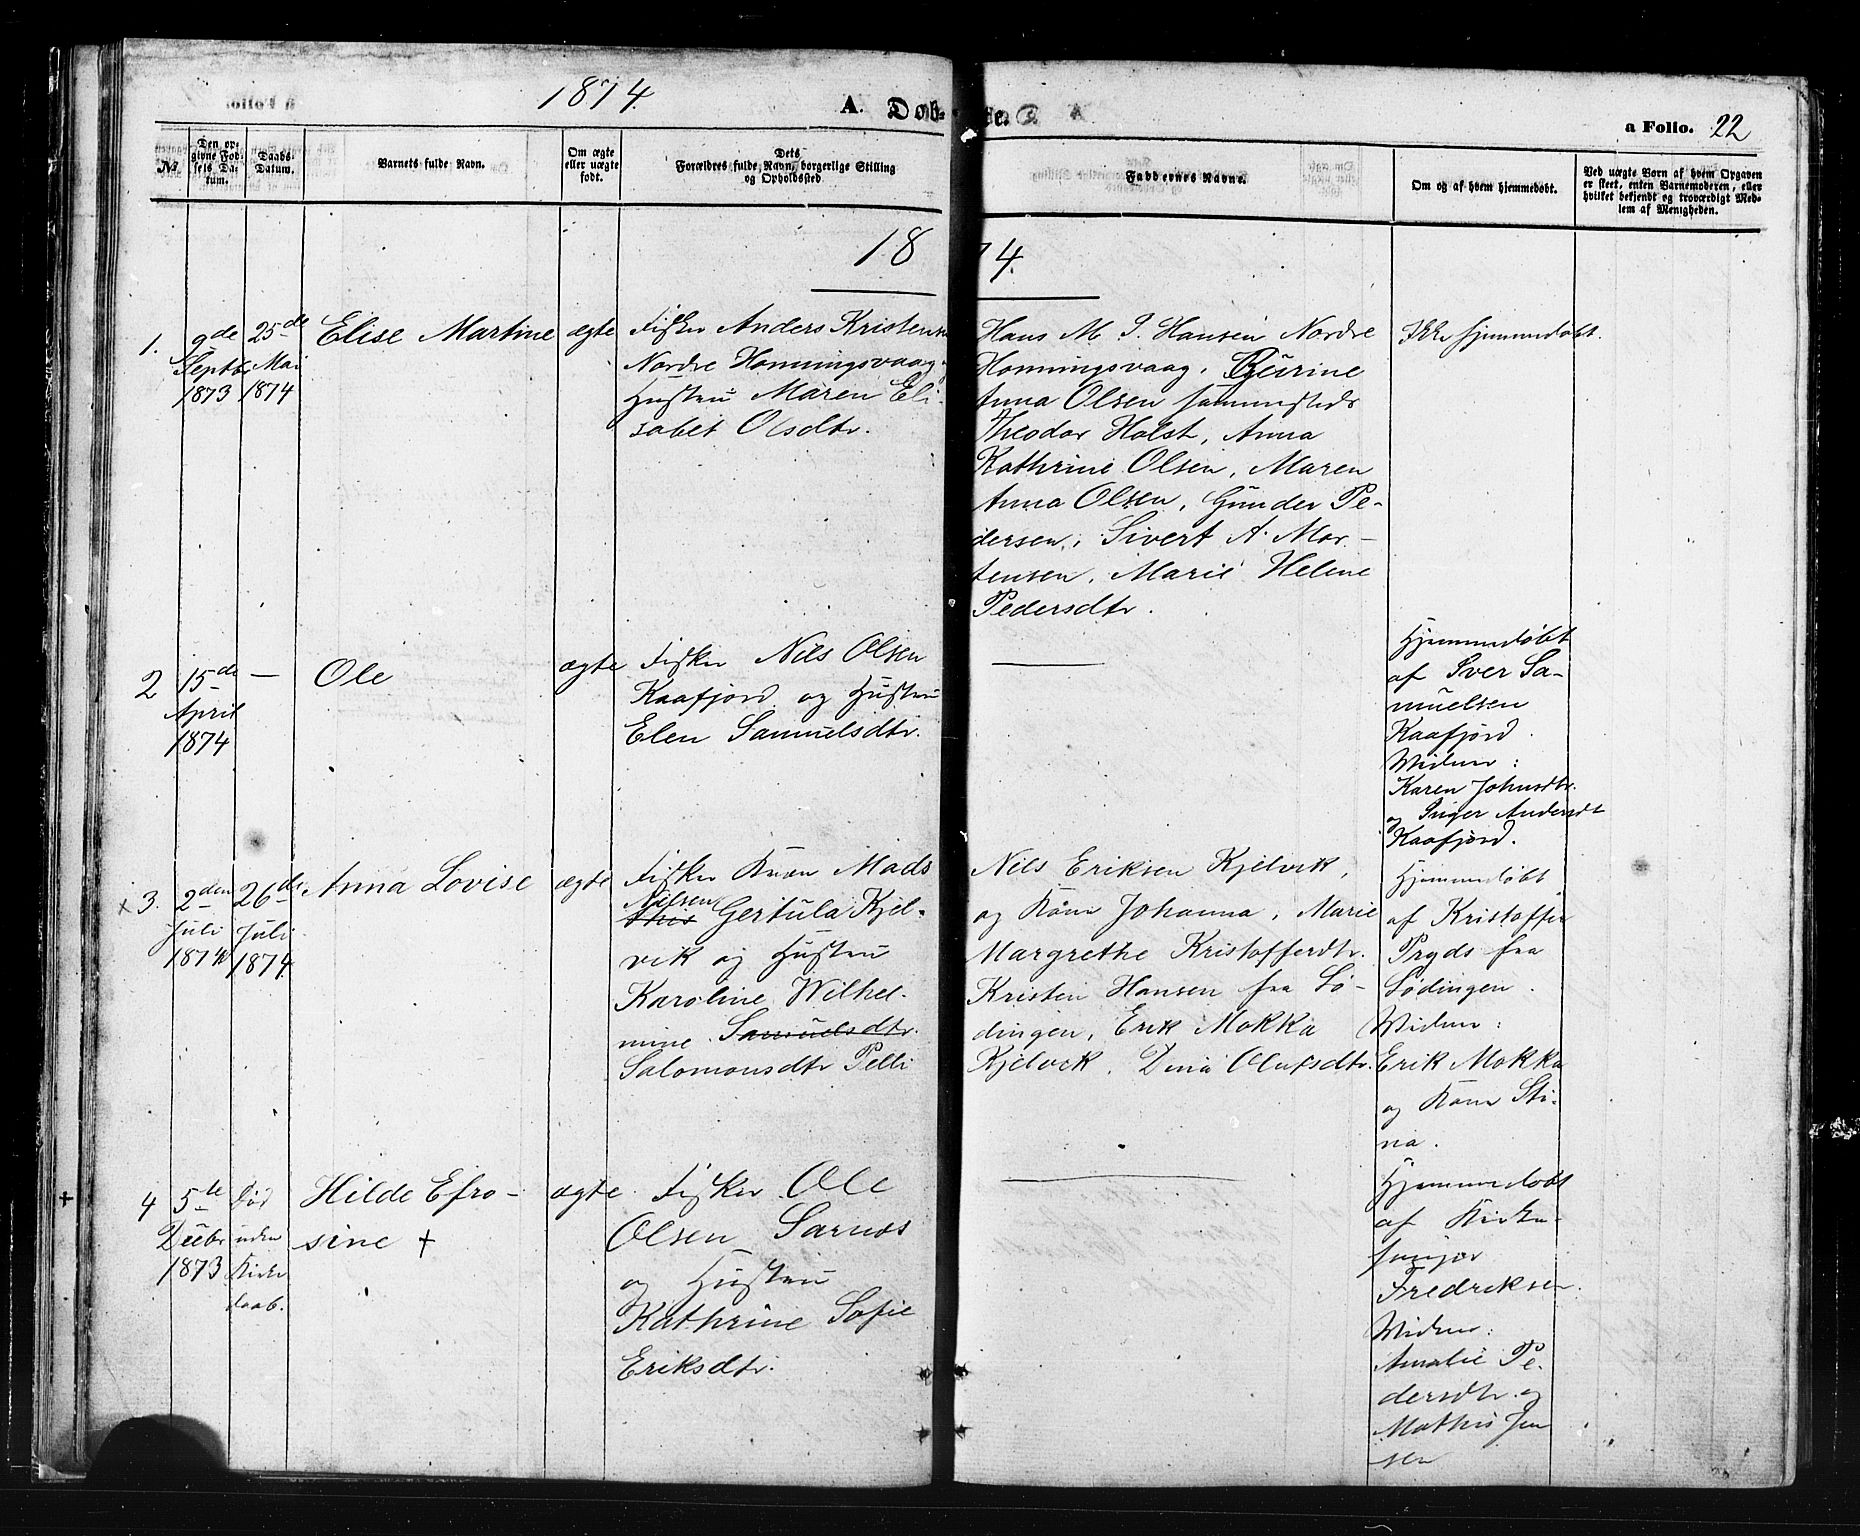 1874.
A. Døbte.
a Folio. 22
№
Den opgivne Fødsels Datum.
Daabs-Datum.
Barnets fulde Navn.
Om ægte eller uægte født.
Dets Forældres fulde Navn, borgerlige Stilling og Opholdssted
Faddernes Navne.
Om og af hvem hjemmedøbt.
Ved uægte Børn af hvem Opgaven er skeet, enten Barnemoderen, eller hvilket bekjendt og troværdigt Medlem af Menigheden.
1874.
1.
9de
Septbr
1873
25de
Mai
1874
Elise Martine
ægte
Fisker Anders Kristensen
Nordre Honningsvaag
Hustru Maren Eli-
sabet Olsdtr.
Hans M. J. Hansen Nordre
Honningsvaag,
Anna Olsen sammesteds
Theodor Holst, Anna
Kathrine Olsen, Maren
Anna Olsen, Gunder Pe-
dersen, Sivert A. Mor-
tensen, Marie Helene
Pedersdtr.
Ikke hjemmedøbt.
2
15de
April
1874
—
Ole
ægte
Fisker Nils Olsen
Kaafjord og Hustru
Elen Samuelsdtr.
Hjemmedøbt
af Iver Sa-
muelsen
Kaafjord.
Widner:
Karen Johnsdtr.
og Inger Andersdt
Kaafjord.
x 3.
2den
Juli
1874
26de
Juli
1874
Anna Lovise
ægte
Fisker Kvæn Mads
Nilsen
Gertula Kjel-
vik og Hustru
Karoline Wilhel-
mine Samuelsdtr.
Salomonsdtr Pelli
Nils Eriksen Kjelvik,
og Kone Johanna, Marie
Margrethe Kristofferdtr.
Kristen Hansen fra Lø-
dingen, Erik Mokka
Kjelvik, Dina Olufsdtr.
Hjemmedøbt
af Kristoffer
Pryds fra
Lødingen.
Widner:
Erik Mokka
og Kone Sti-
na.
4
5te
Decbr
1873
Død
uden
Kirke
daab.
Hilde Efro-
sine +
ægte
Fisker Ole
Olsen Sarnes
og Hustru
Kathrine Sofie
Eriksdtr.
Hjemmedøbt
af Kirke-
sanger
Fredriksen.
Widner:
Amalie Pe-
dersdtr. og
Mathis Jen
sen